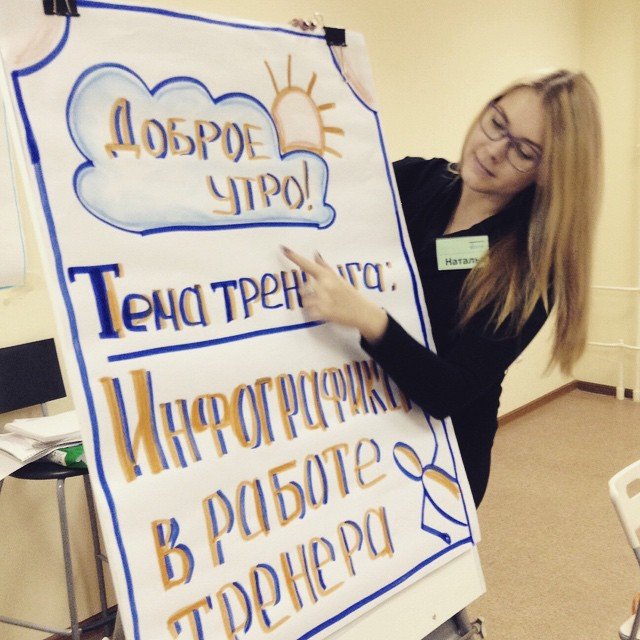 ДОБРОЕ
УТРО!
Тема тренинга:
ИНФОГРАФИКА
В РАБОТЕ
ТРЕНЕРА
Наталья